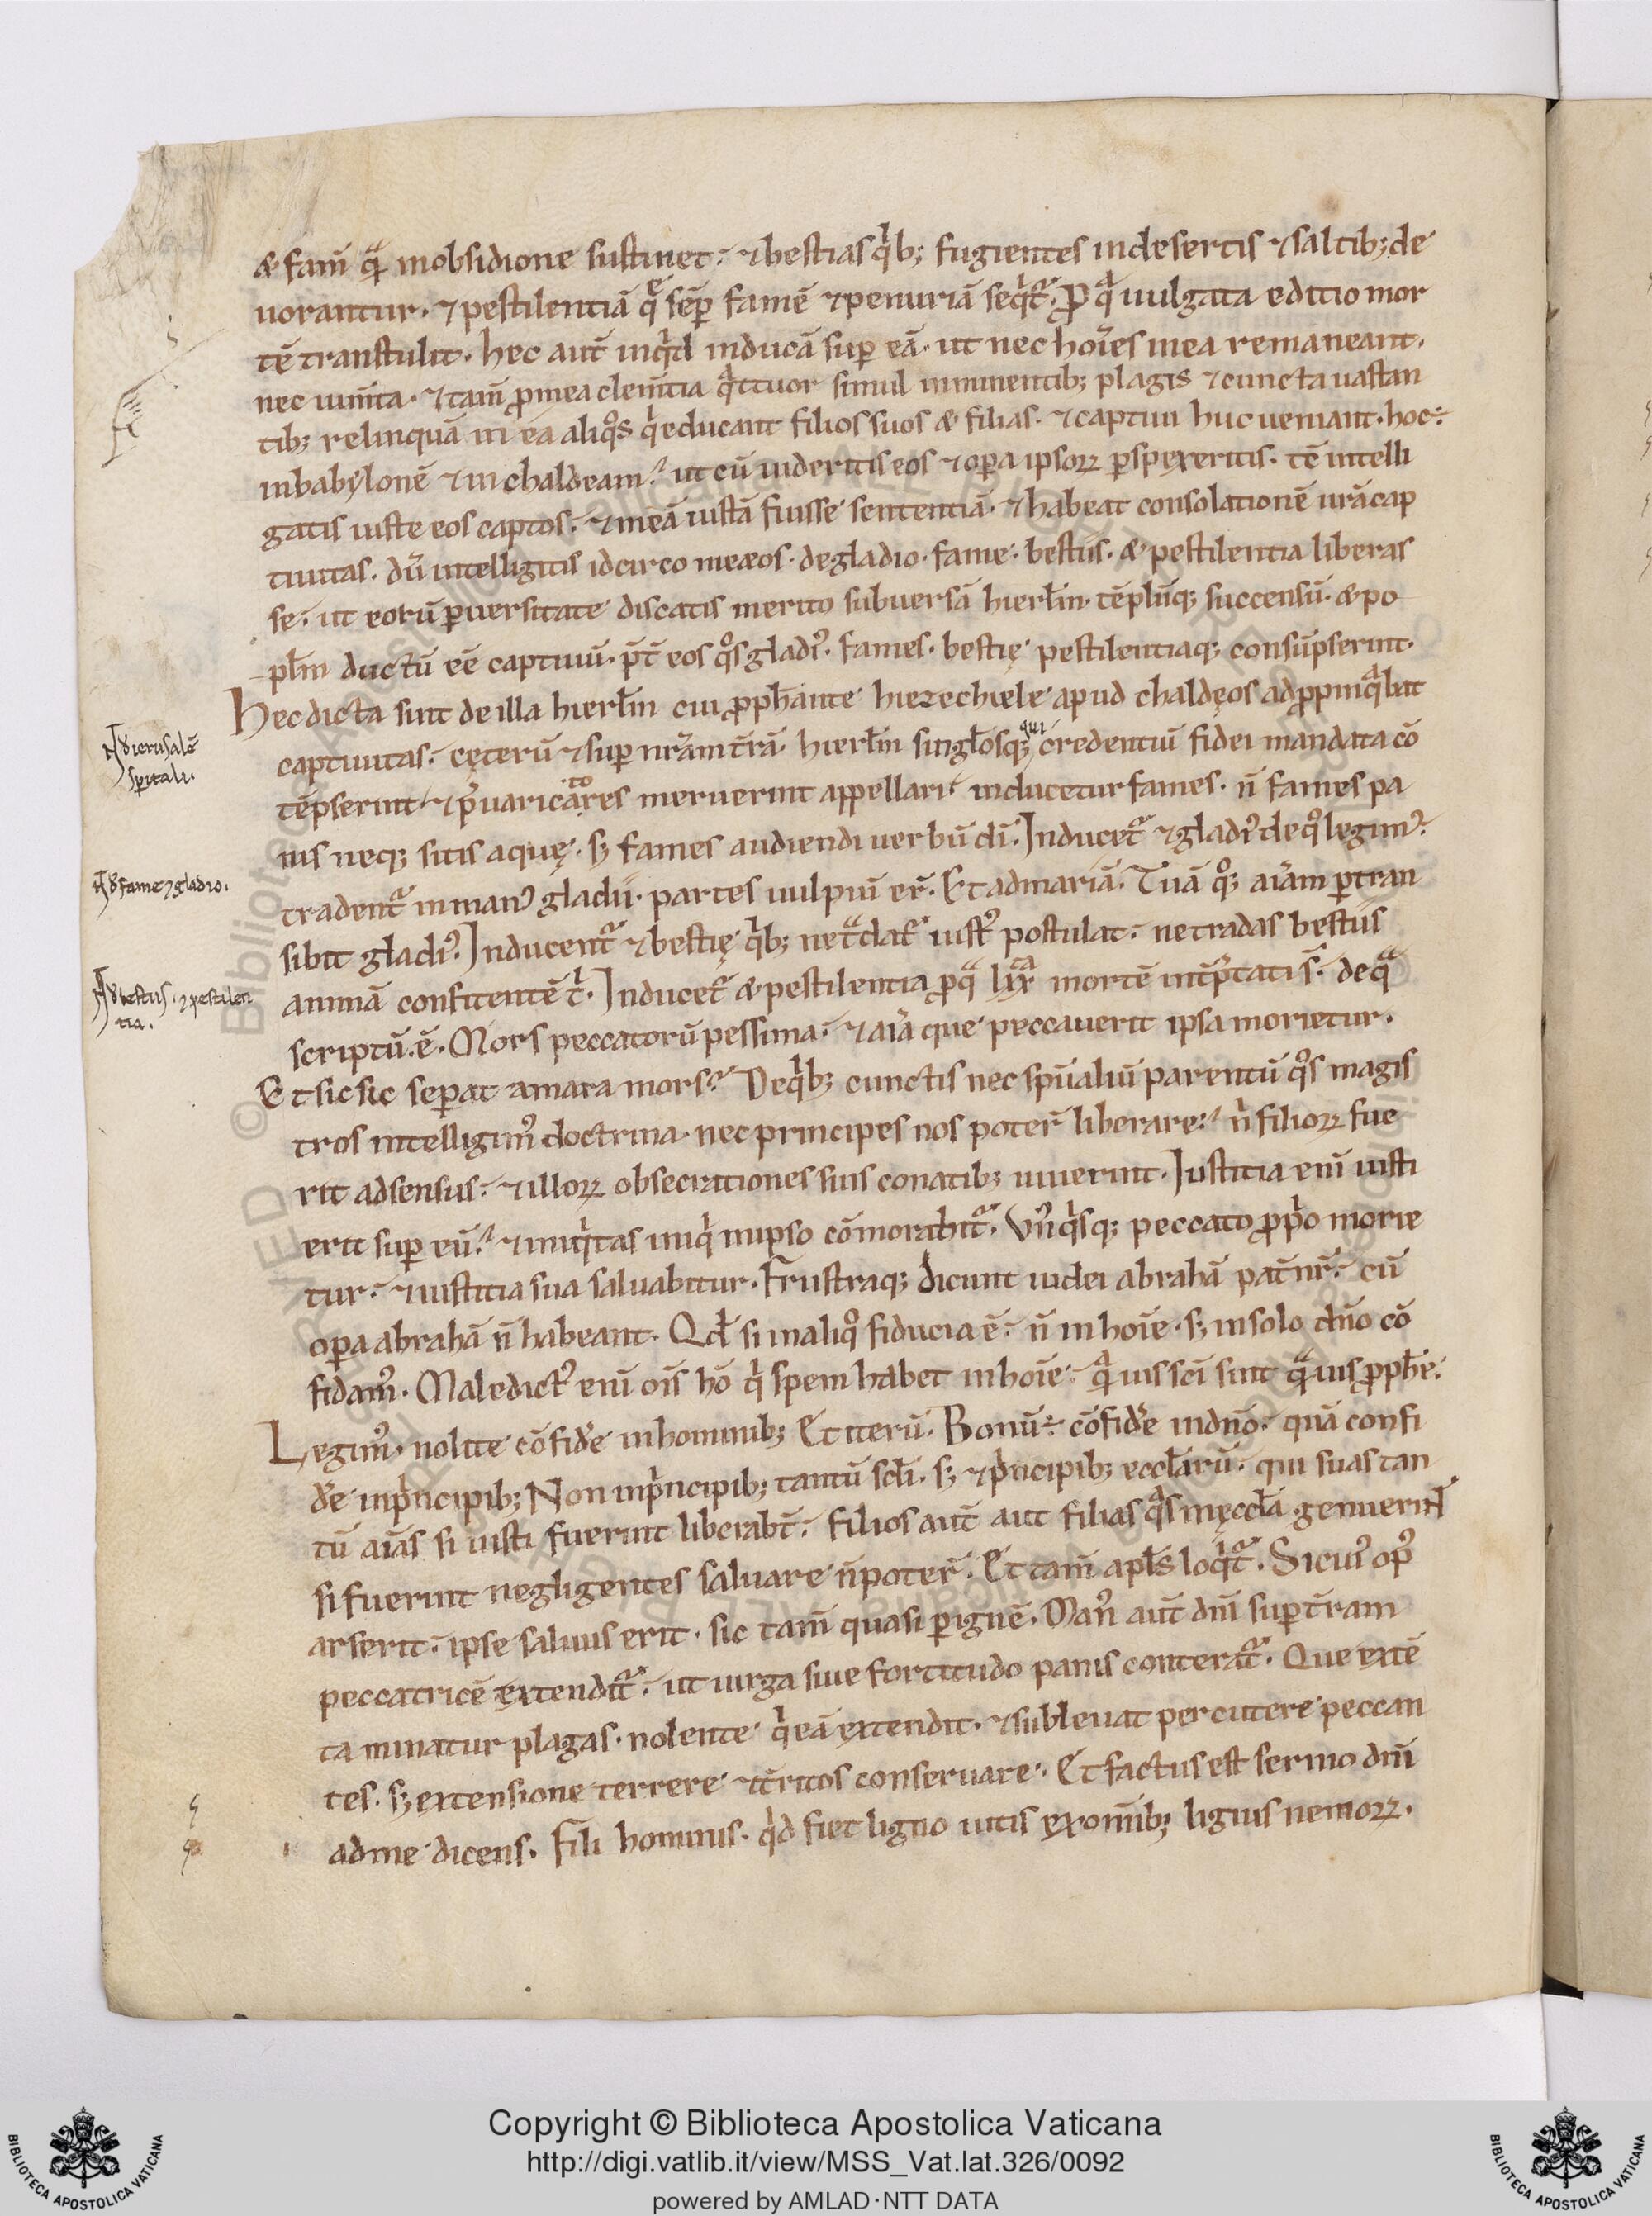 & fam̄ quā inobsidione sustinet. ⁊bestias qͥb; fugientes indesertis ⁊saltib; de
uorantur. ⁊pestilentiā q̄ sēp famē ⁊penuriā seqͥt᷒. ꝓ qͣ uulgata editio mor
tē transtulit. hec aut̄ inqͥd inducā suꝑ eā. ut nec hoīes inea remaneant.
nec iumīta. ⁊tam̄ ꝓmea clem̄tia qͣttuor simul imminentib; plagis ⁊cuncta uastan
tib; relinquā in ea aliqͦs qͥ educant filios suos & filias. ⁊captiui huc ueniant. hoc ÷
inbabylonē ⁊inchaldeam. ut cū uideritis eos ⁊oꝑa ipsoꝝ ꝑspexeritis. tc̄ intelli
gatis iuste eos captos. ⁊meā iustā fuisse sententiā. ⁊habeat consolationē ur̄a cap
tiuitas. dū intelligitis idcirco me eos degladio. fame. bestiis. & pestilentia liberas
se. ut eorū ꝑuersitate discatis merito subuersā hierłm. tēplūq; succensū. & po
płm ductū ee᷒ captiuū. p̄t̄ eos qͦs gladi᷒. fames. bestię pestilentiaq; consūpserint.
Hec dicta sint de illa hierłm cui ꝓph̄ante hiezechiele apud chaldęos adꝓpinqͣbat
captiuitas. cęterū ⁊suꝑ nr̄am t̄rā. hierłm singłosq; qui credentiū fidei mandata cō
tēpserint. ⁊p̄uaricatores meruerint appellari. inducetur fames. n̄ fames pa
nis neq; sitis aquę. s; fames audiendi uerbū dī. Inducet᷒ ⁊gladi᷒ deqͦ legim᷒.
tradent᷒ inman᷒ gladii. partes uulpiū er̄. Et admariā. Tuā qͦ; aīam ꝑtran
sibit gladi᷒. Inducent᷒ ⁊bestię qͥb; netͣdat᷒ iust᷒ postulat. netradas bestiis
animā confitentē tͥ. Inducet᷒ & pestilentia ꝓqͣ lxx mortē int̄p̄tati s̄. deqͣ
scriptū.ē. Mors peccatorū pessima. ⁊aīa que peccauerit ipsa morietur.
Et sic sic seꝑat amara mors. Deqͥb; cunctis nec sp̄ualiū parentū qͦs magis
tros intelligim᷒ doctrina. nec principes nos poter̄ liberare. nͥ filioꝝ fue
rit adsensus. ⁊illoꝝ obsecrationes suis conatib; iuuerint. Iustitia enī iusti
erit suꝑ eū. ⁊iniqͥtas iniqͥ inipso cōmorabit᷒. Vn᷒qͥsq; peccato ꝓpͥo morie
tur. ⁊iustitia sua saluabitur. Frustraq; dicunt iudei abrahā pat̄ nr̄. cū
oꝑa abrahā n̄ habeant. Qđ si inaliqͦ fiducia ē. n̄ in hoīe. s; insolo dn̄o cō
fidam᷒. Maledict᷒ enī oīs hō qͥ spem habet inhoīe. qͣuis sc̄i sint qͣuis ꝓph̄e.
Legim᷒. nolite cōfid̄e inhominib; Et iterū. Bonū ÷ cōfid̄e indn̄o. quā confi
d̄e inpͥncipib; Non inpͥncipib; tantū sc̄łi. s; ⁊pͥncipib; eccłarū. qui suas tan
tū aīas si iusti fuerint liberabt̄. filios aut̄ aut filias qͣs inęccła genuerint
si fuerint negligentes saluare n̄poter̄. Et tam̄ apłs loqͥt᷒. Sicui᷒ op᷒
arserit. ipse saluus erit. sic tam̄ quasi ꝑignē. Man᷒ aut̄ dn̄i suꝑt̄ram
peccatricē extendit᷒. ut uirga siue fortitudo panis conterat᷒. Que extē
ta minatur plagas. nolente qͥ eā extendit. ⁊subleuat percutere peccan
tes. s; extensione terrere ⁊t̄ritos conseruare. Et factus est sermo dn̄i
adme dicens. Fili hominis. qͥd fiet ligno uitis exomnib; lignis nemoꝝ.
N̄ đ ierusalē
sꝑitali.
N̄ đ fame ⁊ gladio.
N̄ đ bestiis. ⁊ pestilen
tia.
Copyright © Biblioteca Apostolica Vaticana
http://digi.vatlib.it/view/MSS_Vat.lat.326/0092
powered by AMLAD·NTT DATA
BIBLIOTECA APOSTOLICA VATICANA
BIBLIOTECA APOSTOLICA VATICANA